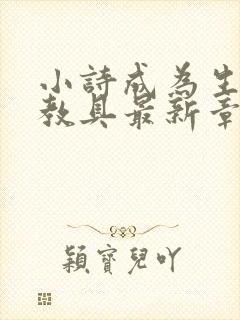 小詩成為生
教具最新章
穎寶兒吖